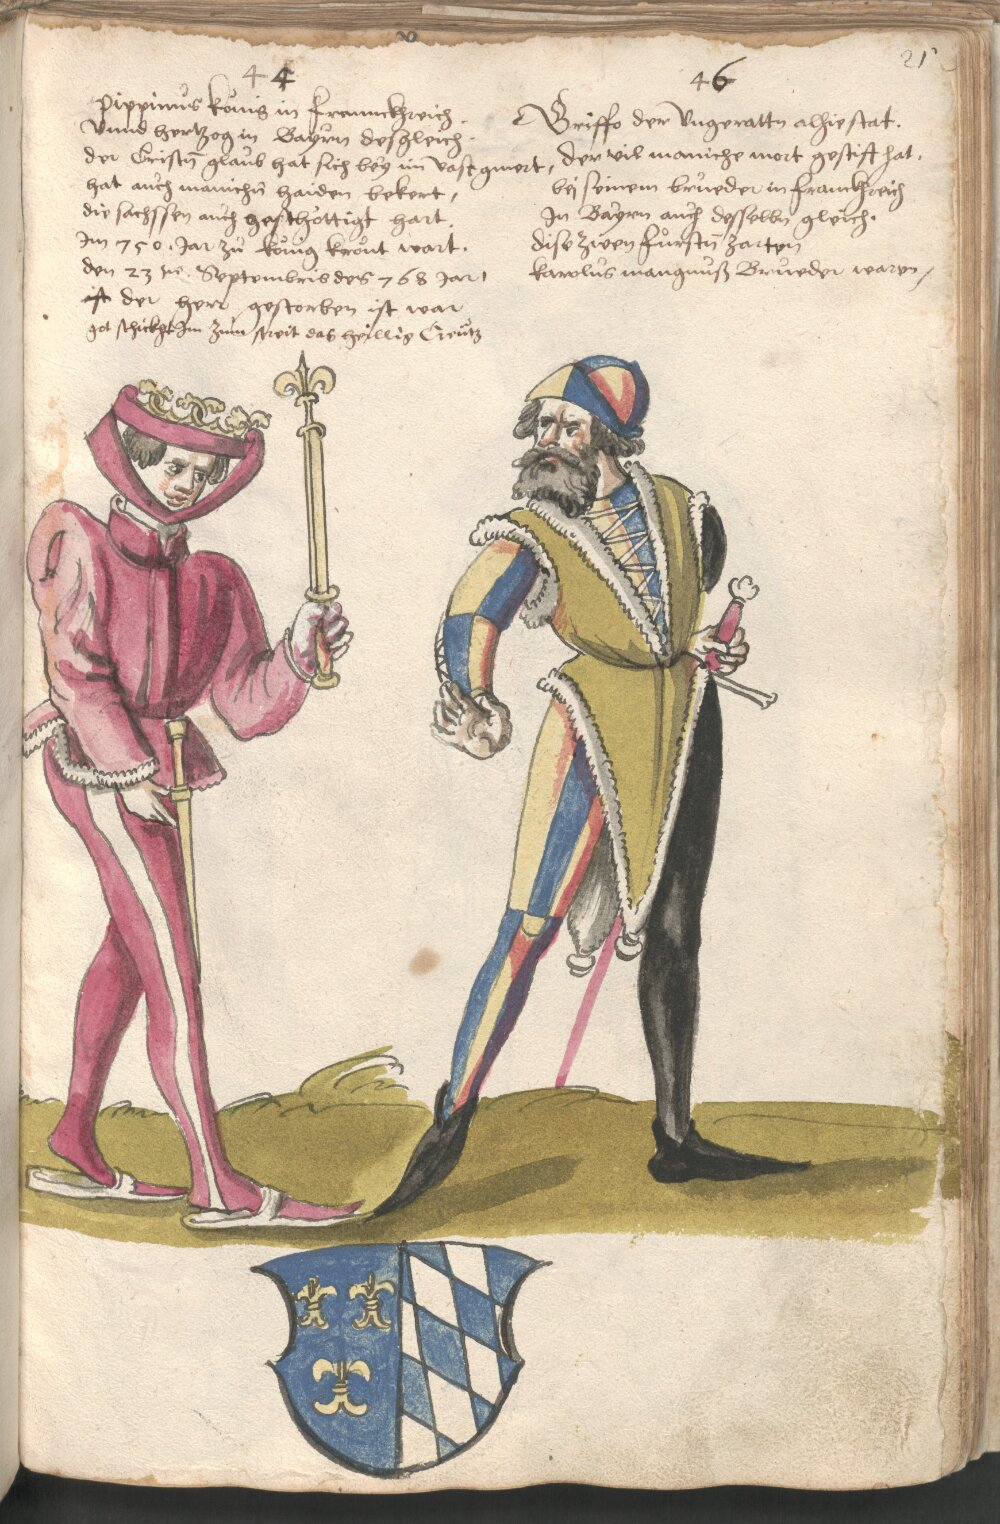 21
44
Pippinus König in Franckhreich.
Vnnd hertzog in Bayrn desgleich.
der Cristn̄ glaub hat sich bey im vast gmert,
hat auch manichn̄ haiden bekert,
die sachssen auch hart.
Im 750. Jar zu König krönt wart.
den 23 te. Septembris des 768 Jar
ist der herr gestorben ist war
got schickhet Im zum streit das heillig Creutz
46
Griffo der Vngeratn alhie stat.
der vil maniche mort gestift hat.
bej seinem brueder in Franckhreich
In Bayrn auch desselbn gleich.
dise zwen fürstn̄ zarten
karolus mangnuß Brueder waren,